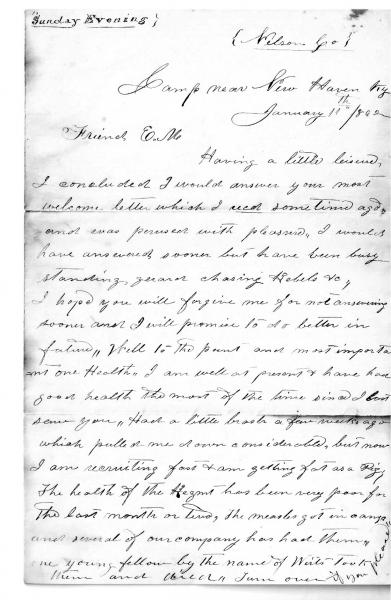 "Sunday Evening}
{Nelson Co}
Camp near New Haven Ky
January 11th /862
Friend E. M
Having a little leisure,
I concluded I would answer your most
welcome letter which I recd sometime ago,
and was perused with pleasure, I would
have answered sooner but have been busy
standing guard chasing Rebels &c,
I hope you will forgive me for not answering
sooner and I will promise to do better in
future,, Well to the point and most importa
nt one Health,, I am well at present & have had
good health the most of the time since I last
saw you,, Had a little brash a few weeks ago
which pulled me down considerable, but now
I am recruiting fast & am getting fat as a Pig,
The health of the Regmt has been very poor for
the last month or two, the measles got in camp,
and several of our company has had them,,
one young fellow by the name of Wirts took
them and died,, Turn over if you please